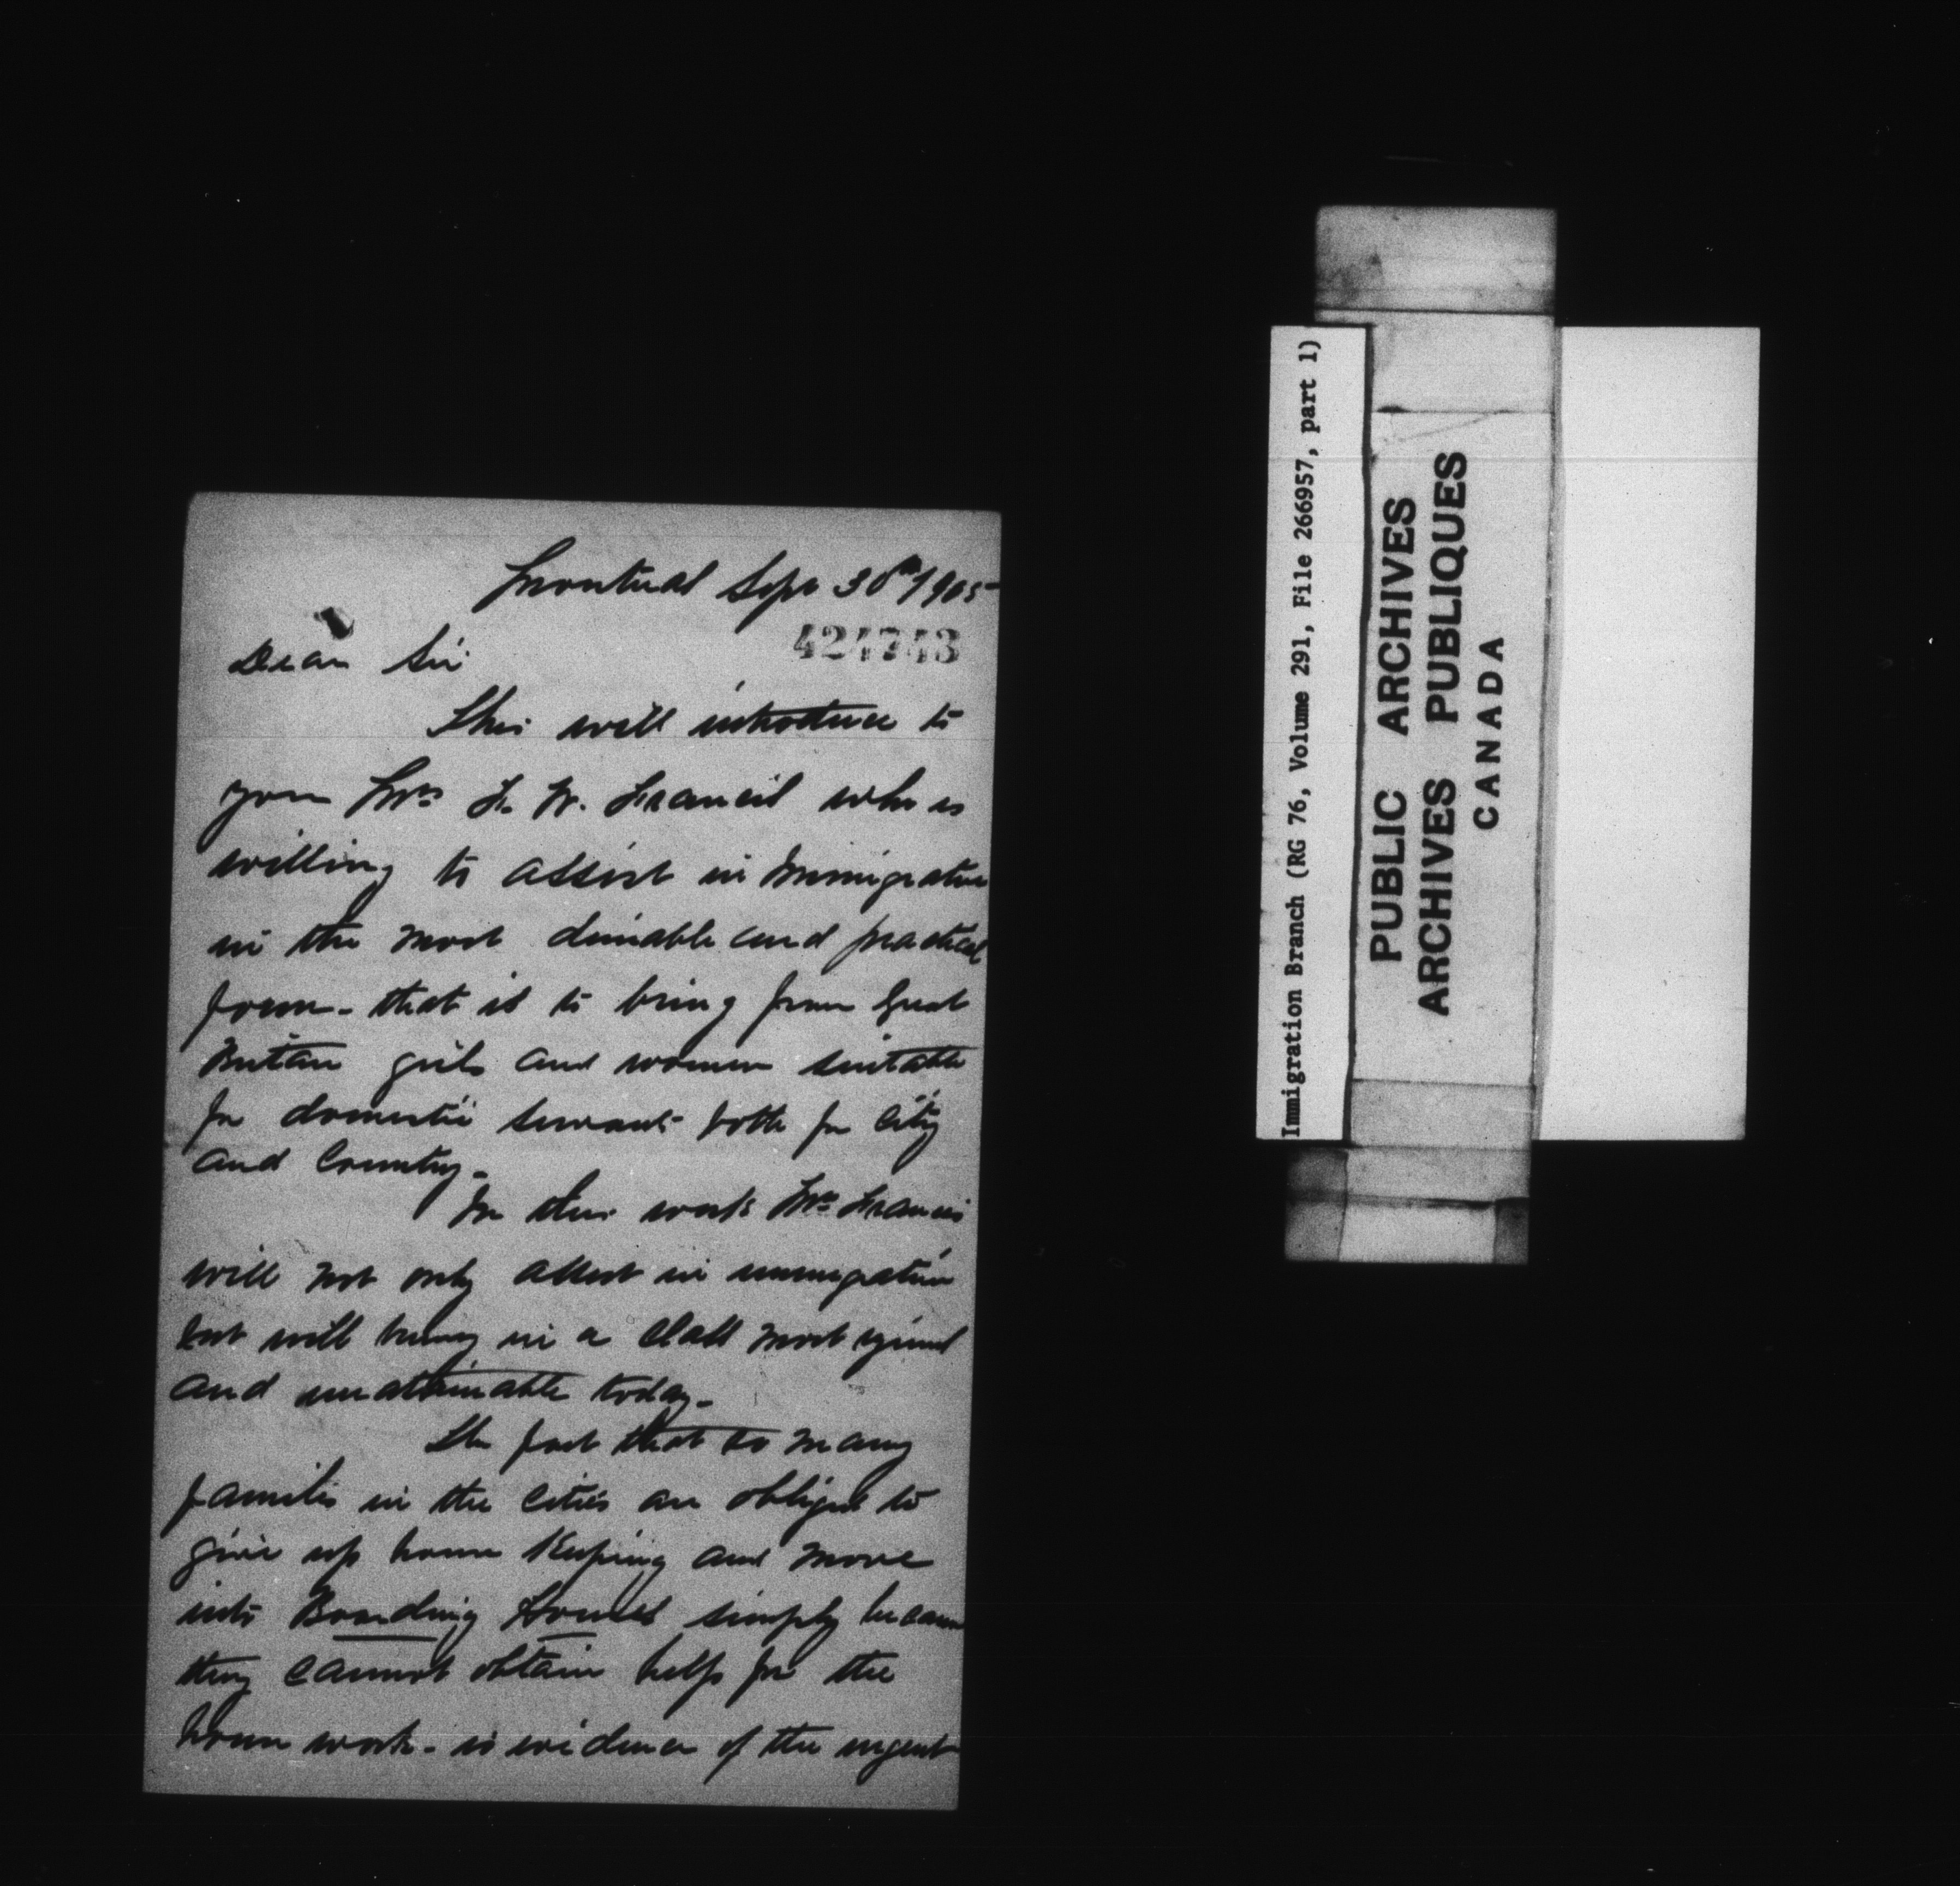 Montreal Sept 30th 1905
424743
Dear Sir
This will introduce to
you Mrs F. W. Francis who is
willing to assist in Immigration
in the most desirable and practical
form - that is to bring from Great
Britain girls and women suitable
for domestic servants both for city
and Country.
In this work Mrs Francis
will not only assist in immigration
but will bring in a class most
and unattainable today.
The fact that so many
families in the cities are obliged to
give up house Keeping and move
into Boarding Houses simply because
they cannot obtain help for the
house work - is evidence of the urgent
Immigration Branch (RG 76, Volume 291, File 266957, part 1)
PUBLIC ARCHIVES
ARCHIVES PUBLIQUES
CANADA